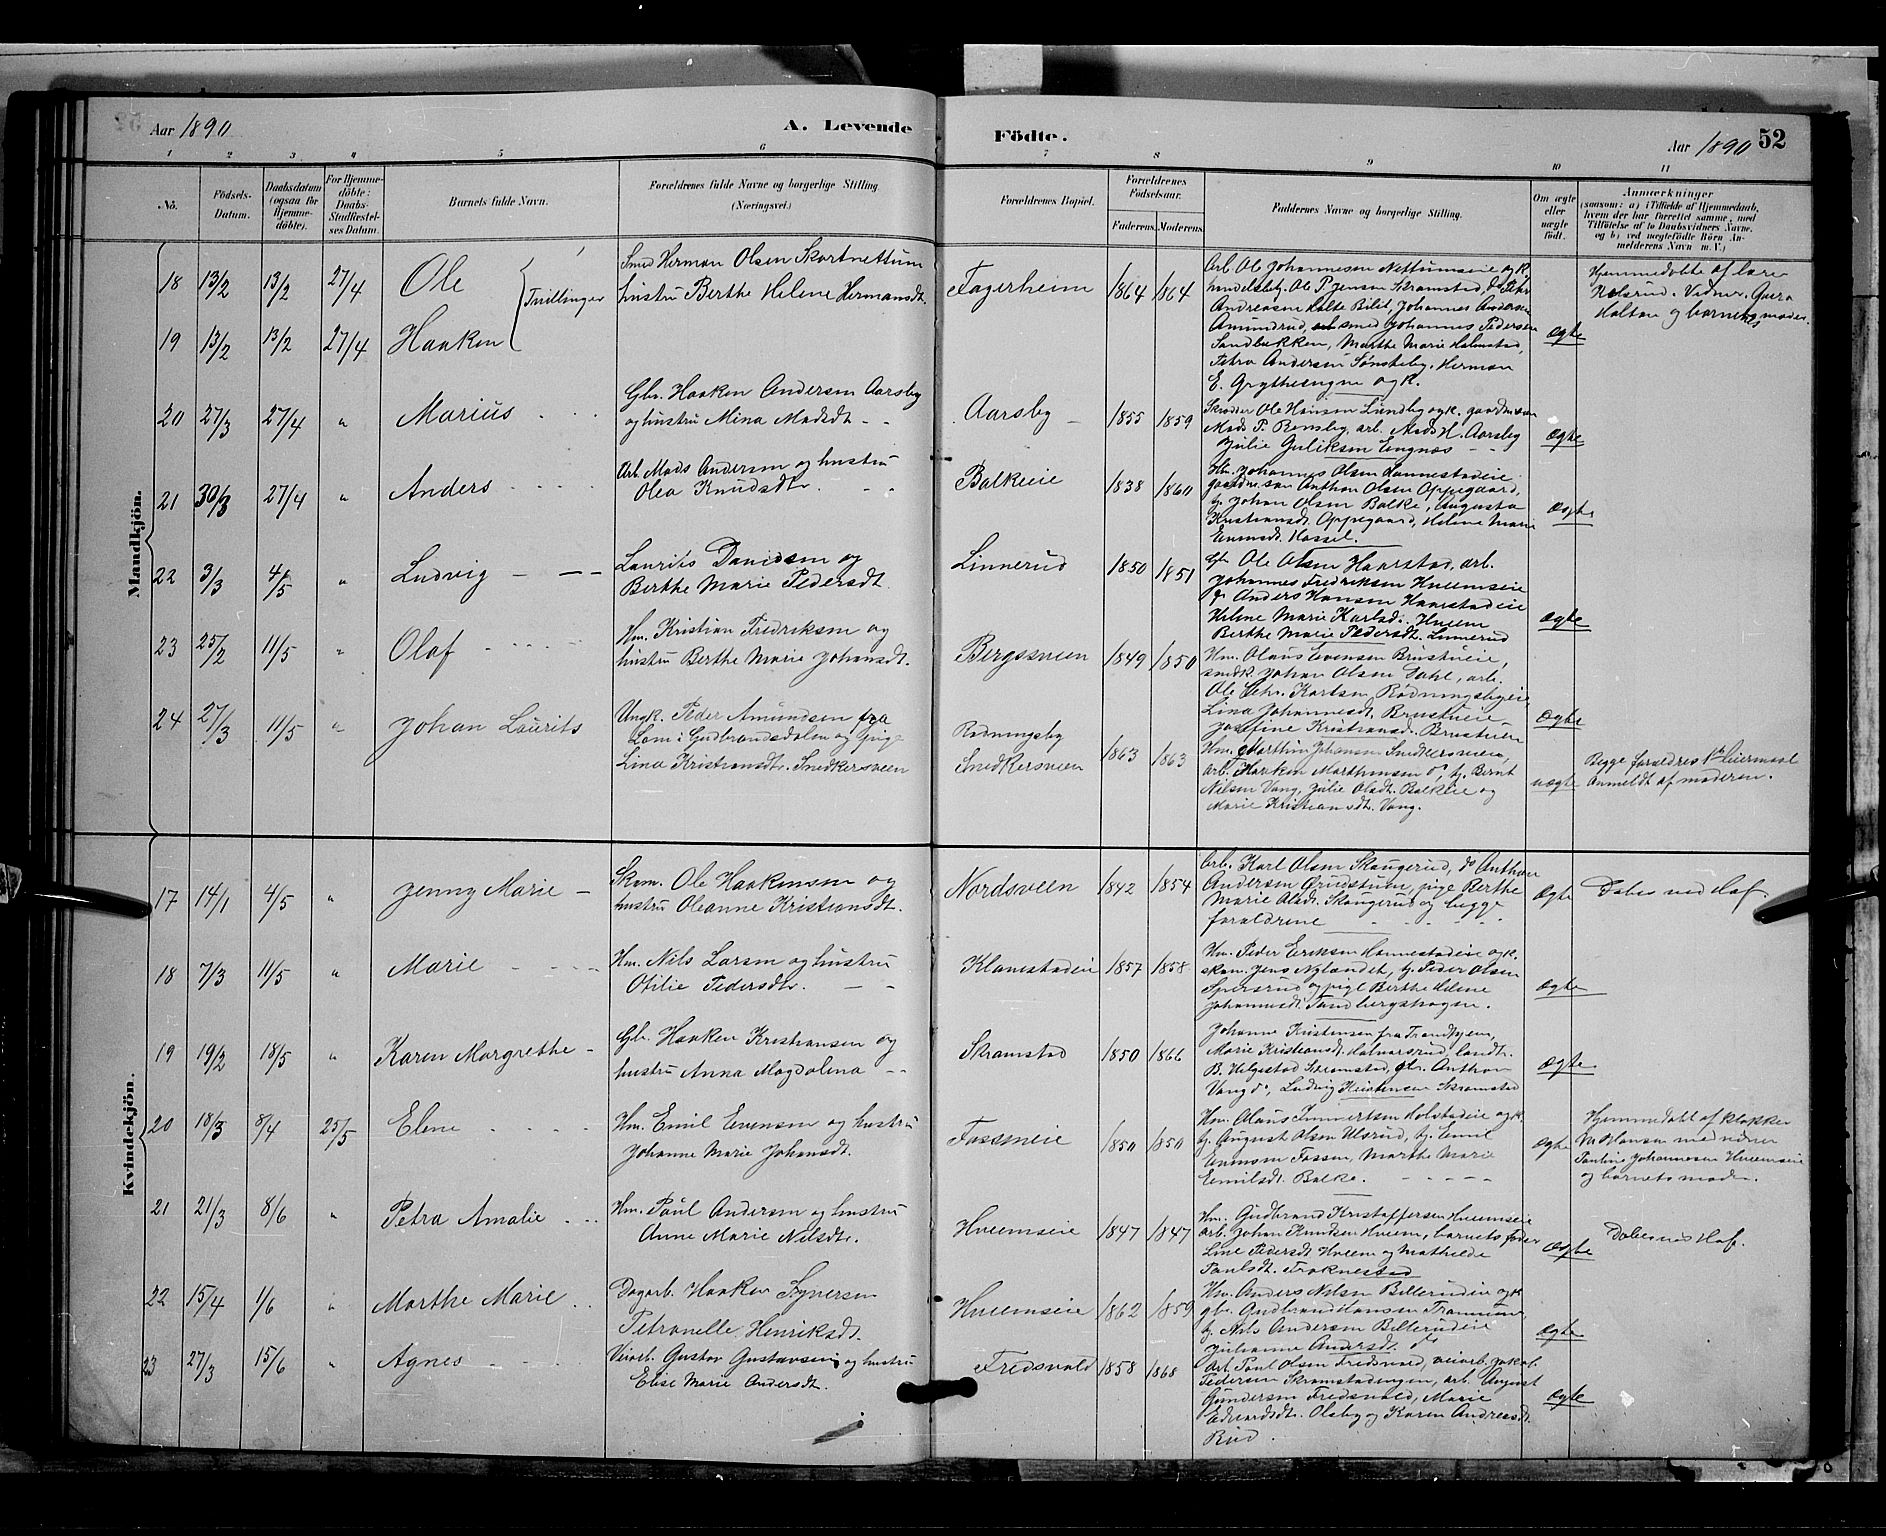 Aar 1890
A. Levende
Födte.
Aar 1890
52
1 2 3 4 5 6 7 8 9 10 11
No.
Födsels-Datum.
Daabsdatum (ogsaa för Hjemme-döbte).
For Hjemme-döbte: Daabs-Stadfæstel-ses Datum.
Barnets fulde Navn.
Forældrenes fulde Navne og borgerlige Stilling.
(Næringsvei.)
Forældrenes Bopæl.
Forældrenes Födselsaar.
Faderens. Moderens.
Faddernes Navne og borgerlige Stilling.
Om ægte eller uægte födt.
Anmærkninger
(saasom: a) i Tilfælde af Hjemmedaab,
hvem der har forrettet samme, med
Tilföielse af to Daabsvidners Navne.
og b) ved uægtefödte Börn An-
melderens Navn m. V.)
Mandkjön.
18 13/2 13/2 27/4 Ole
Tvillinger
Smed Herman Olsen Skartnettum
hustru Berthe Helene Hermansdt.
Fagerheim 1864 1864
Arb. Ole Johannesen Nettumseie og k.
Ole P. Jensen Skramstad,
Andreasen Bilit, Johannes Andersen
Amundrud, smed Johannes Pedersen
Sandbakken, Marthe Marie Helmstad,
Petra Andersen Sønsteby, Herman
E. Grythengen og k.
Hjemmedøbte af lærer
Vidner
og barnets moder.
19 13/2 13/2 27/4 Haaken
ægte
20 27/3 27/4 " Marius
Gbr. Haaken Andersen Aarsby
og hustru Mina Madsdt.
Aarsby 1855 1859
Skræder Ole Hansen Lundby og k. gaardm. søn
Mads P. Rensby, arb. Mads H. Aarsby
Julie Guliksen Engnæs
ægte
21 30/3 27/4 " Anders
Arb. Mads Andersen og hustru
Olea Knudsdtr.
Balkeie 1838 1860
Hm. Johannes Olsen
Anthon Olsen Oppegaard,
tj. Johan Olsen Balke, Augusta
Kristiansdt. Oppegaard, Helene Marie
Evensdt. Hassel.
ægte
22 3/3 4/5 " Ludvig
Laurits Davidsen og
Berthe Marie Pedersdt.
Linnerud 1850 1851
Ole Olsen Haarstad, arb.
Johannes Fredriksen Hveemseie
Anders Hansen Haarstadeie
Helene Marie Karlsd. Hveem
Berthe Marie Pedersdt. Linnerud
ægte
23 25/2 11/5 " Olaf
Hm. Kristian Fredriksen og
hustru Berthe Marie Johansdt.
Bergsveen 1849 1850
Hm. Olaus Evensen Brustueie,
Johan Olsen Dahl, arb.
Ole Chr. Karlsen Rødningsbyeie
Lina Johannesdt. Brustueie
Josefine Kristiansd. Brustuen
ægte
24 27/3 11/5 " Johan Laurits
Ungk. Peder Amundsen fra
Lom i Gudbrandsdalen og Pige
Lina Kristiansdt. Snedkersveen
Rødningsby
Snedkersveen
1863 1863
Hm. Marthin Johansen Snedkersveen,
arb. Haaken Marthinsen do, tj. Bernt
Nilsen Vang, Julie Olsdt. Balkeie og
Marie Kristiansdt. Vang.
uægte
Begge forældres 1ste leiermaal
Anmeldt af moderen.
Kvindekjön.
17 14/1 4/5 " Jenny Marie
Skom. Ole Haakensen og
hustru Oleanne Kristiansdt.
Nordsveen 1842 1854
Arb. Karl Olsen Skaugerud, do Anthon
Andersen pige Berthe
Marie Olsdt. Skaugerud og begge
forældrene
ægte
18 7/3 11/5 " Marie
Hm. Nils Larsen og hustru
Otilie Pedersdtr.
Klonestadeie 1857 1858
Hm. Peder Eriksen og k.
skom. Jens Nylandet, tj. Peder Olsen
Spersrud og pige Berthe Helene
Johannesdt. Sandbergshagen.
ægte
19 19/2 18/5 " Karen Margrethe
Gbr. Haaken Kristiansen og
hustru Anna Magdalena
Skramstad 1850 1866
Johanne Kristensen fra Trondhjem,
Marie Kristiansdt. Halvorsrud, landh.
B. Helgestad Skramstad, gbr. Anthon
Vang do, Ludvig Kristensen Skramstad
ægte
20 18/3 8/4 25/5 Elene
Hm. Emil Evensen og hustru
Johanne Marie Johansdt.
Fossmeie 1850 1850
Hm. Olaus og k.
tj. August Olsen Ulsrud, tj. Emil
Evensen Fossen, Marthe Marie
Emilsdt. Balke.
ægte
Hjemmedøbt af klokker
Hansen med vidner
Pauline Johannesen Hveemseie
og barnets moder.
21 21/3 8/6 " Petra Amalie
Hm. Paul Andersen og hustru
Anne Marie Nilsdtr.
Hveemseie 1847 1847
Hm. Gudbrand Kristoffersen Hveemseie
arb. Johan Knudsen Hveem, barnets fader
Line Pedersdt. Hveem og Mathilde
Paulsdt.
ægte
22 15/4 1/6 " Marthe Marie
Dagarb. Haaken Synersen
Petronelle Henriksdt.
Hveemseie 1862 1859
Hm. Anders Nilsen Billerudeie og k
gbr. Gudbrand Hansen
tj. Nils Andersen Billerudeie
Julianne Andersdt. do
ægte
23 27/3 15/6 " Agnes
Veiarb. Gustav Gustavsen og hustru
Elise Marie Andersdt.
Fredsvold 1858 1868
Arb. Paul Olsen Fredsvold, veiarb. Jakob
Pedersen Skramstadengen, arb. August
Gundersen Fredsvold, Marie
Edvardsdt. Olsby og Karen Andreasdt.
Rud.
ægte